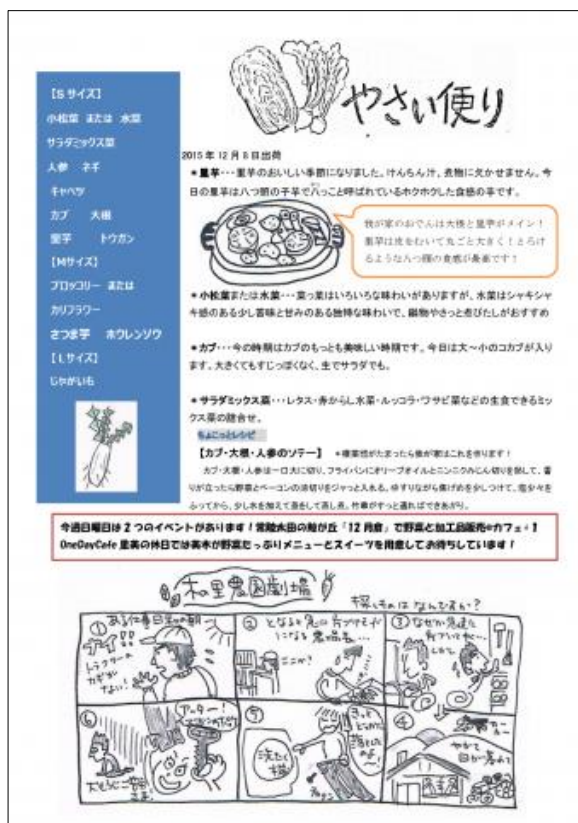 やさい便り
【Sサイズ】
小松菜 または 水菜
サラダミックス菜
人参 ネギ
キャベツ
カブ 大根
里芋 トウガン
【Mサイズ】
ブロッコリー または
カリフラワー
さつま芋 ホウレンソウ
【Lサイズ】
じゃがいも
2015年12月8日出荷
*里芋・・・里芋のおいしい季節になりました。けんちん汁、煮物に欠かせません。今
日の里芋は八つ頭の子芋で八っこと呼ばれているホクホクした食感の芋です。
我が家のおでんは大根と里芋がメイン!
里芋は皮をむいて丸ごと大きく!とろけ
るような八つ頭の食感が最高です!
*小松菜または水菜・・・菜っ葉はいろいろな味わいがありますが、水菜はシャキシャ
キ感のある少し苦味と甘みのある独特な味わいで、鍋物やさっと煮びたしがおすすめ
*カブ・・・今の時期はカブのもっとも美味しい時期です。今日は大~小のコカブが入り
ます。大きくてもすじっぽくなく、生でサラダでも。
*サラダミックス菜・・・レタス・赤からし水菜・ルッコラ・ワサビ菜などの生食できるミッ
クス菜の詰合せ。
ちょこっとレシピ
【カブ・大根・人参のソテー】
カブ・大根・人参は一口大に切り、フライパンにオリーブオイルとニンニクみじん切りを熱して、香
りが立ったら野菜とベーコンの細切りをジャっと入れる。ゆすりながら焦げめを少しつけて、塩少々を
ふってから、少し水を加えて蓋をして蒸し煮。竹串がすっと通ればできあがり。
今週日曜日は2つのイベントがあります!常陸太田の鯨が丘「12月倉」で野菜と加工品販売+カフェ+1
OneDayCafe 里美の休日では美木が野菜たっぷりメニューとスイーツを用意してお待ちしています!
木の里農園劇場
探しものはなんですか?
① ある仕事日和の朝
トラクターの
カギが
ない!
②
ここか?
③ なぜか急に
④
やがて
日が暮れて
⑤
洗たく
機
⑥